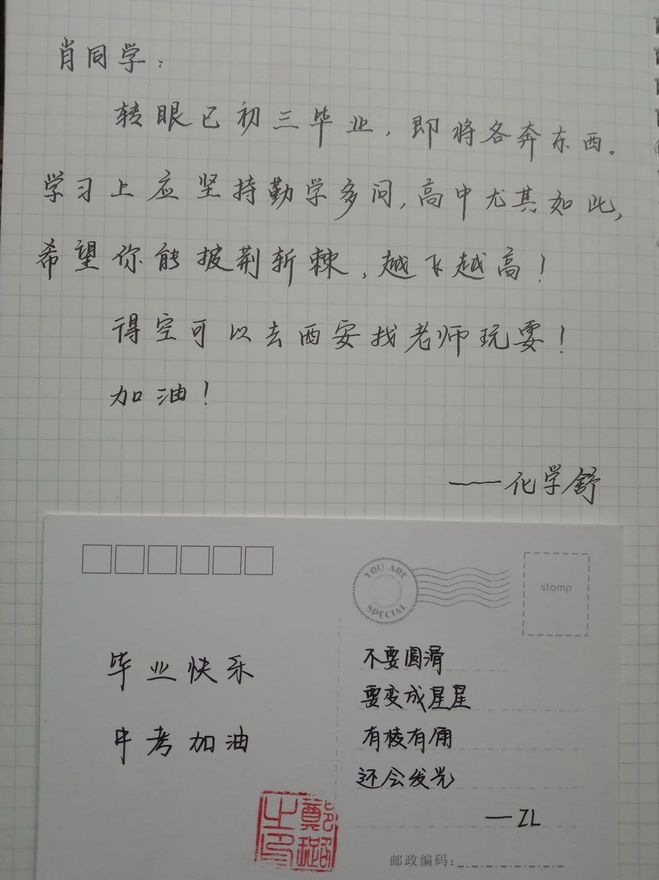 肖同学：
转眼已初三毕业，即将各奔东西。
学习上应坚持勤学多问，高中尤其如此，
希望你能披荆斩棘，越飞越高！
得空可以去西安找老师玩耍！
加油！
——化学舒
YOU ARE
SPECIAL
stamp
毕业快乐
中考加油
不要圆滑
要变成星星
有棱有角
还会发光
—ZL
邮政编码：